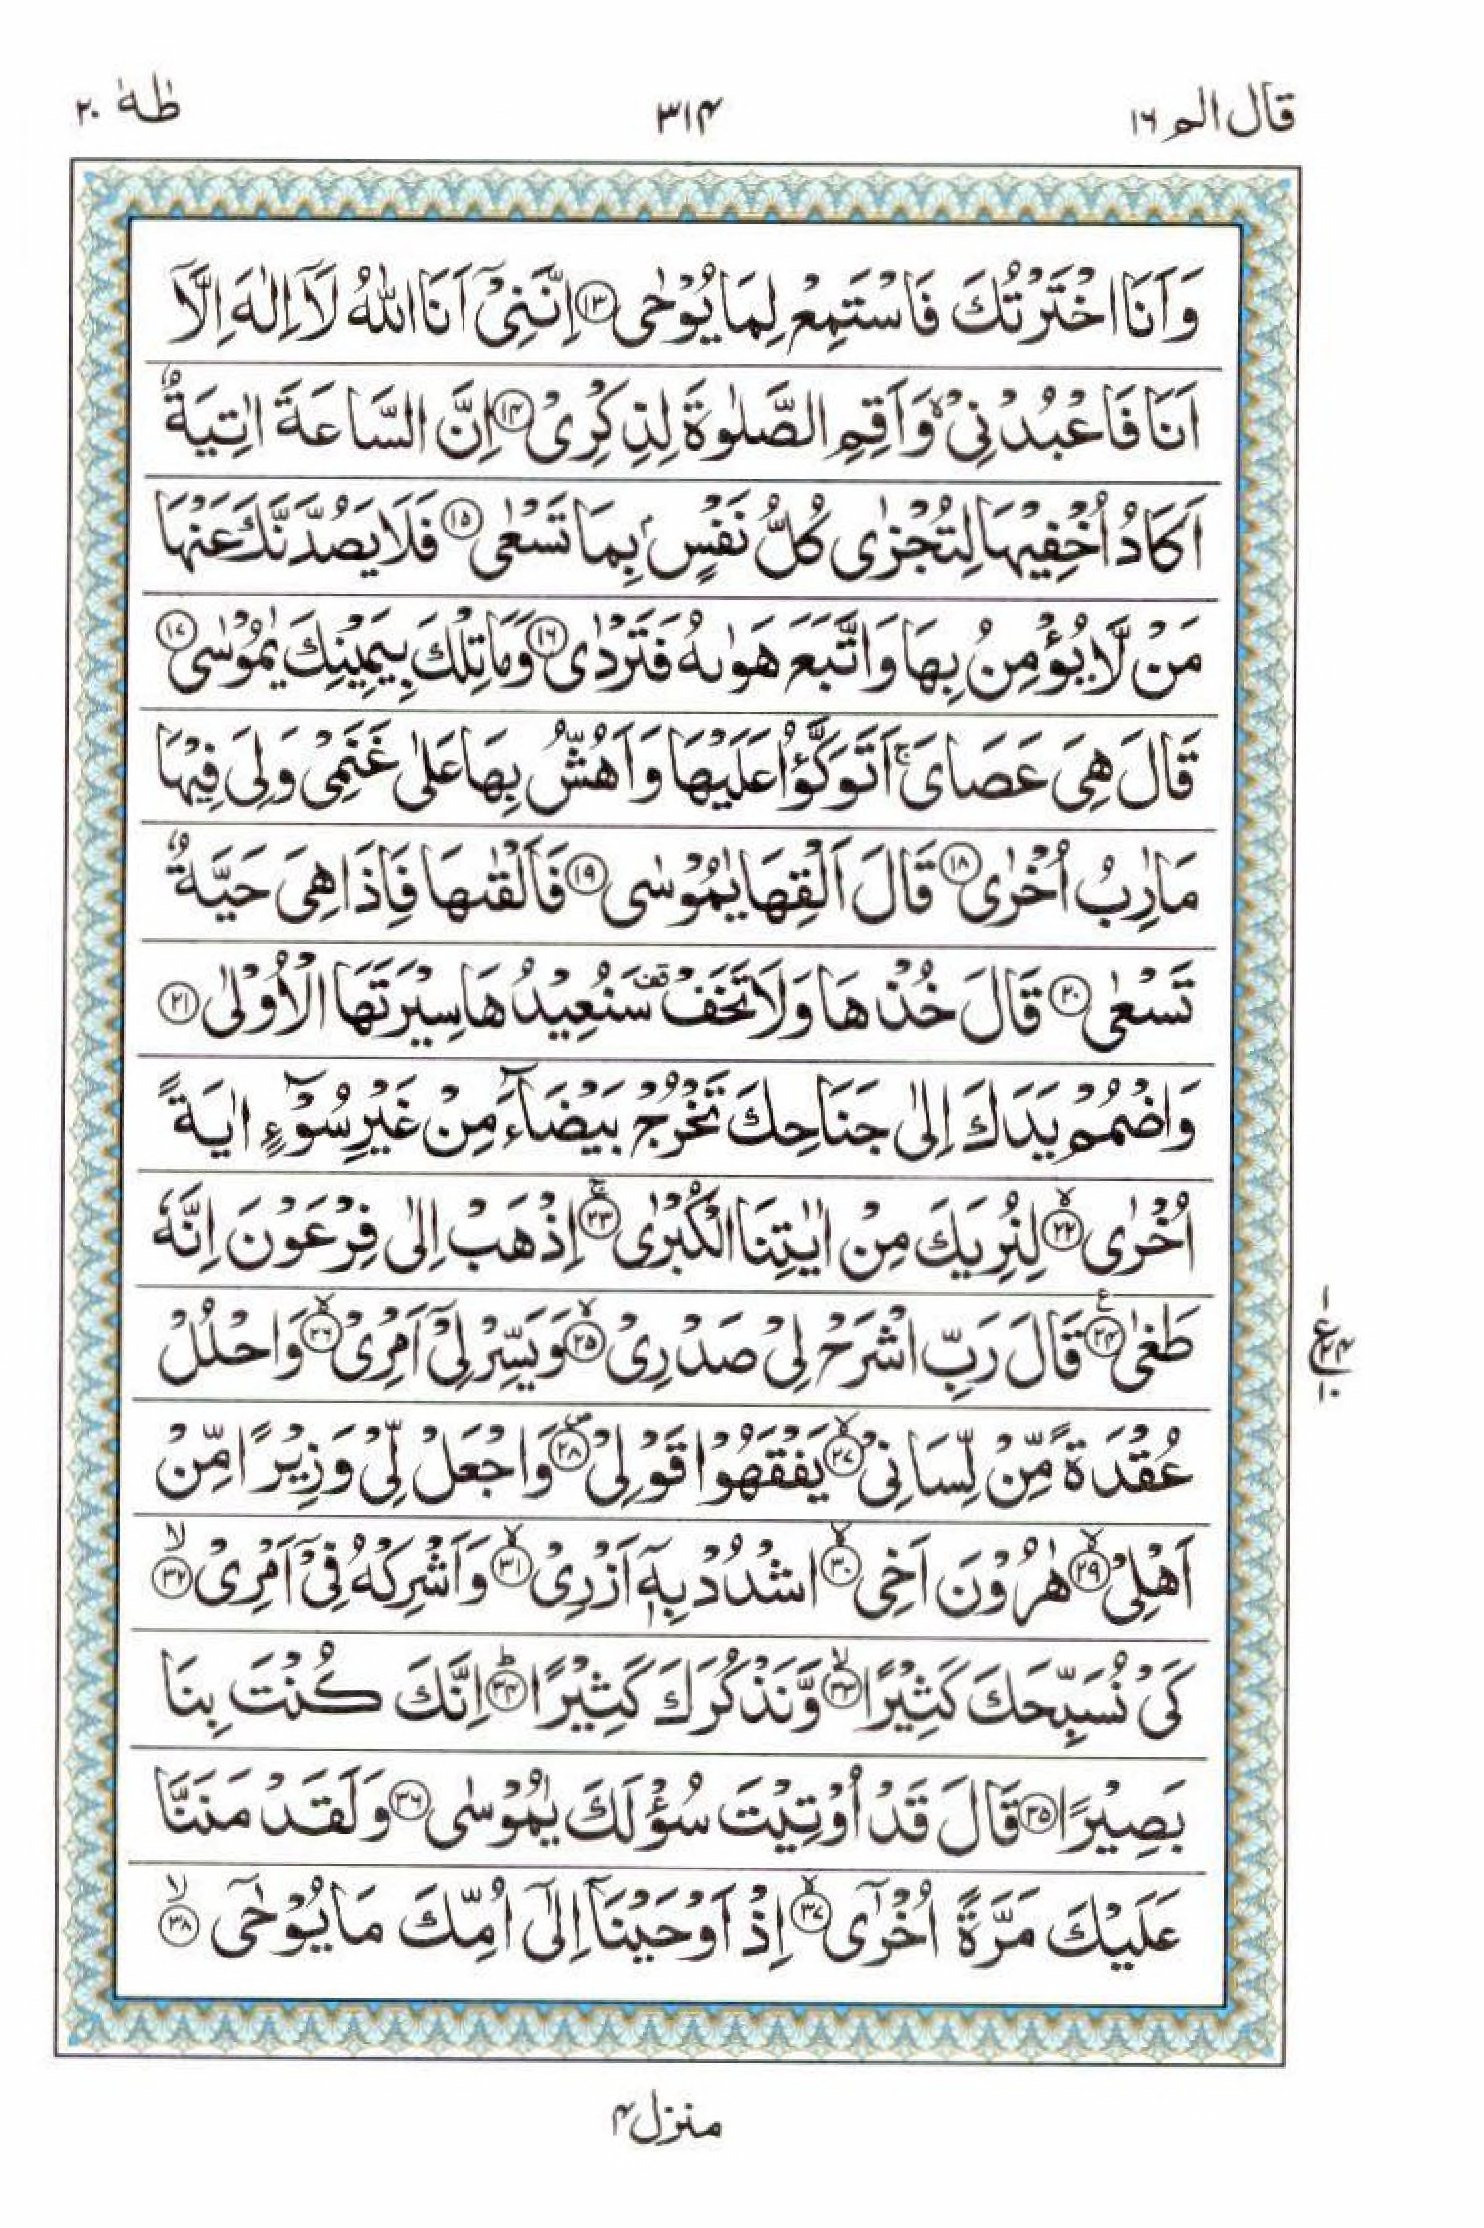 قال الم ١٦ ٣١٤ طٰهٰ ٢٠
وَاَنَا اخْتَرْتُكَ فَاسْتَمِعْ لِمَا يُوْحٰى ﴿١٣﴾ اِنَّنِيْۤ اَنَا اللّٰهُ لَاۤ اِلٰهَ اِلَّاۤ
اَنَا فَاعْبُدْنِيْ ۙ وَاَقِمِ الصَّلٰوةَ لِذِكْرِيْ ﴿١٤﴾ اِنَّ السَّاعَةَ اٰتِيَةٌ
اَكَادُ اُخْفِيْهَا لِتُجْزٰى كُلُّ نَفْسٍۭ بِمَا تَسْعٰى ﴿١٥﴾ فَلَا يَصُدَّنَّكَ عَنْهَا
مَنْ لَّا يُؤْمِنُ بِهَا وَاتَّبَعَ هَوٰىهُ فَتَرْدٰى ﴿١٦﴾ وَمَا تِلْكَ بِيَمِيْنِكَ يٰمُوْسٰى ﴿١٧﴾
قَالَ هِيَ عَصَايَ ۚ اَتَوَكَّؤُا عَلَيْهَا وَاَهُشُّ بِهَا عَلٰى غَنَمِيْ وَلِيَ فِيْهَا
مَاٰرِبُ اُخْرٰى ﴿١٨﴾ قَالَ اَلْقِهَا يٰمُوْسٰى ﴿١٩﴾ فَاَلْقٰىهَا فَاِذَا هِيَ حَيَّةٌ
تَسْعٰى ﴿٢٠﴾ قَالَ خُذْهَا وَلَا تَخَفْ ۥقف سَنُعِيْدُهَا سِيْرَتَهَا الْاُوْلٰى ﴿٢١﴾
وَاضْمُمْ يَدَكَ اِلٰى جَنَاحِكَ تَخْرُجْ بَيْضَآءَ مِنْ غَيْرِ سُوْٓءٍ اٰيَةً
اُخْرٰى ۙ﴿٢٢﴾ لِنُرِيَكَ مِنْ اٰيٰتِنَا الْكُبْرٰى ۚ﴿٢٣﴾ اِذْهَبْ اِلٰى فِرْعَوْنَ اِنَّهٗ
طَغٰى ﴿٢٤﴾ قَالَ رَبِّ اشْرَحْ لِيْ صَدْرِيْ ۙ﴿٢٥﴾ وَيَسِّرْ لِيْۤ اَمْرِيْ ۙ﴿٢٦﴾ وَاحْلُلْ
ع ١ ٢٤ ١٠
عُقْدَةً مِّنْ لِّسَانِيْ ۙ﴿٢٧﴾ يَفْقَهُوْا قَوْلِيْ ۪﴿٢٨﴾ وَاجْعَلْ لِّيْ وَزِيْرًا مِّنْ
اَهْلِيْ ۙ﴿٢٩﴾ هٰرُوْنَ اَخِى ۙ﴿٣٠﴾ اشْدُدْ بِهٖۤ اَزْرِيْ ۙ﴿٣١﴾ وَاَشْرِكْهُ فِيْۤ اَمْرِيْ ۙ﴿٣٢﴾
كَيْ نُسَبِّحَكَ كَثِيْرًا ۙ﴿٣٣﴾ وَّنَذْكُرَكَ كَثِيْرًا ؕ﴿٣٤﴾ اِنَّكَ كُنْتَ بِنَا
بَصِيْرًا ﴿٣٥﴾ قَالَ قَدْ اُوْتِيْتَ سُؤْلَكَ يٰمُوْسٰى ﴿٣٦﴾ وَلَقَدْ مَنَنَّا
عَلَيْكَ مَرَّةً اُخْرٰٓى ۙ﴿٣٧﴾ اِذْ اَوْحَيْنَاۤ اِلٰٓى اُمِّكَ مَا يُوْحٰٓى ۙ﴿٣٨﴾
منزل ٤